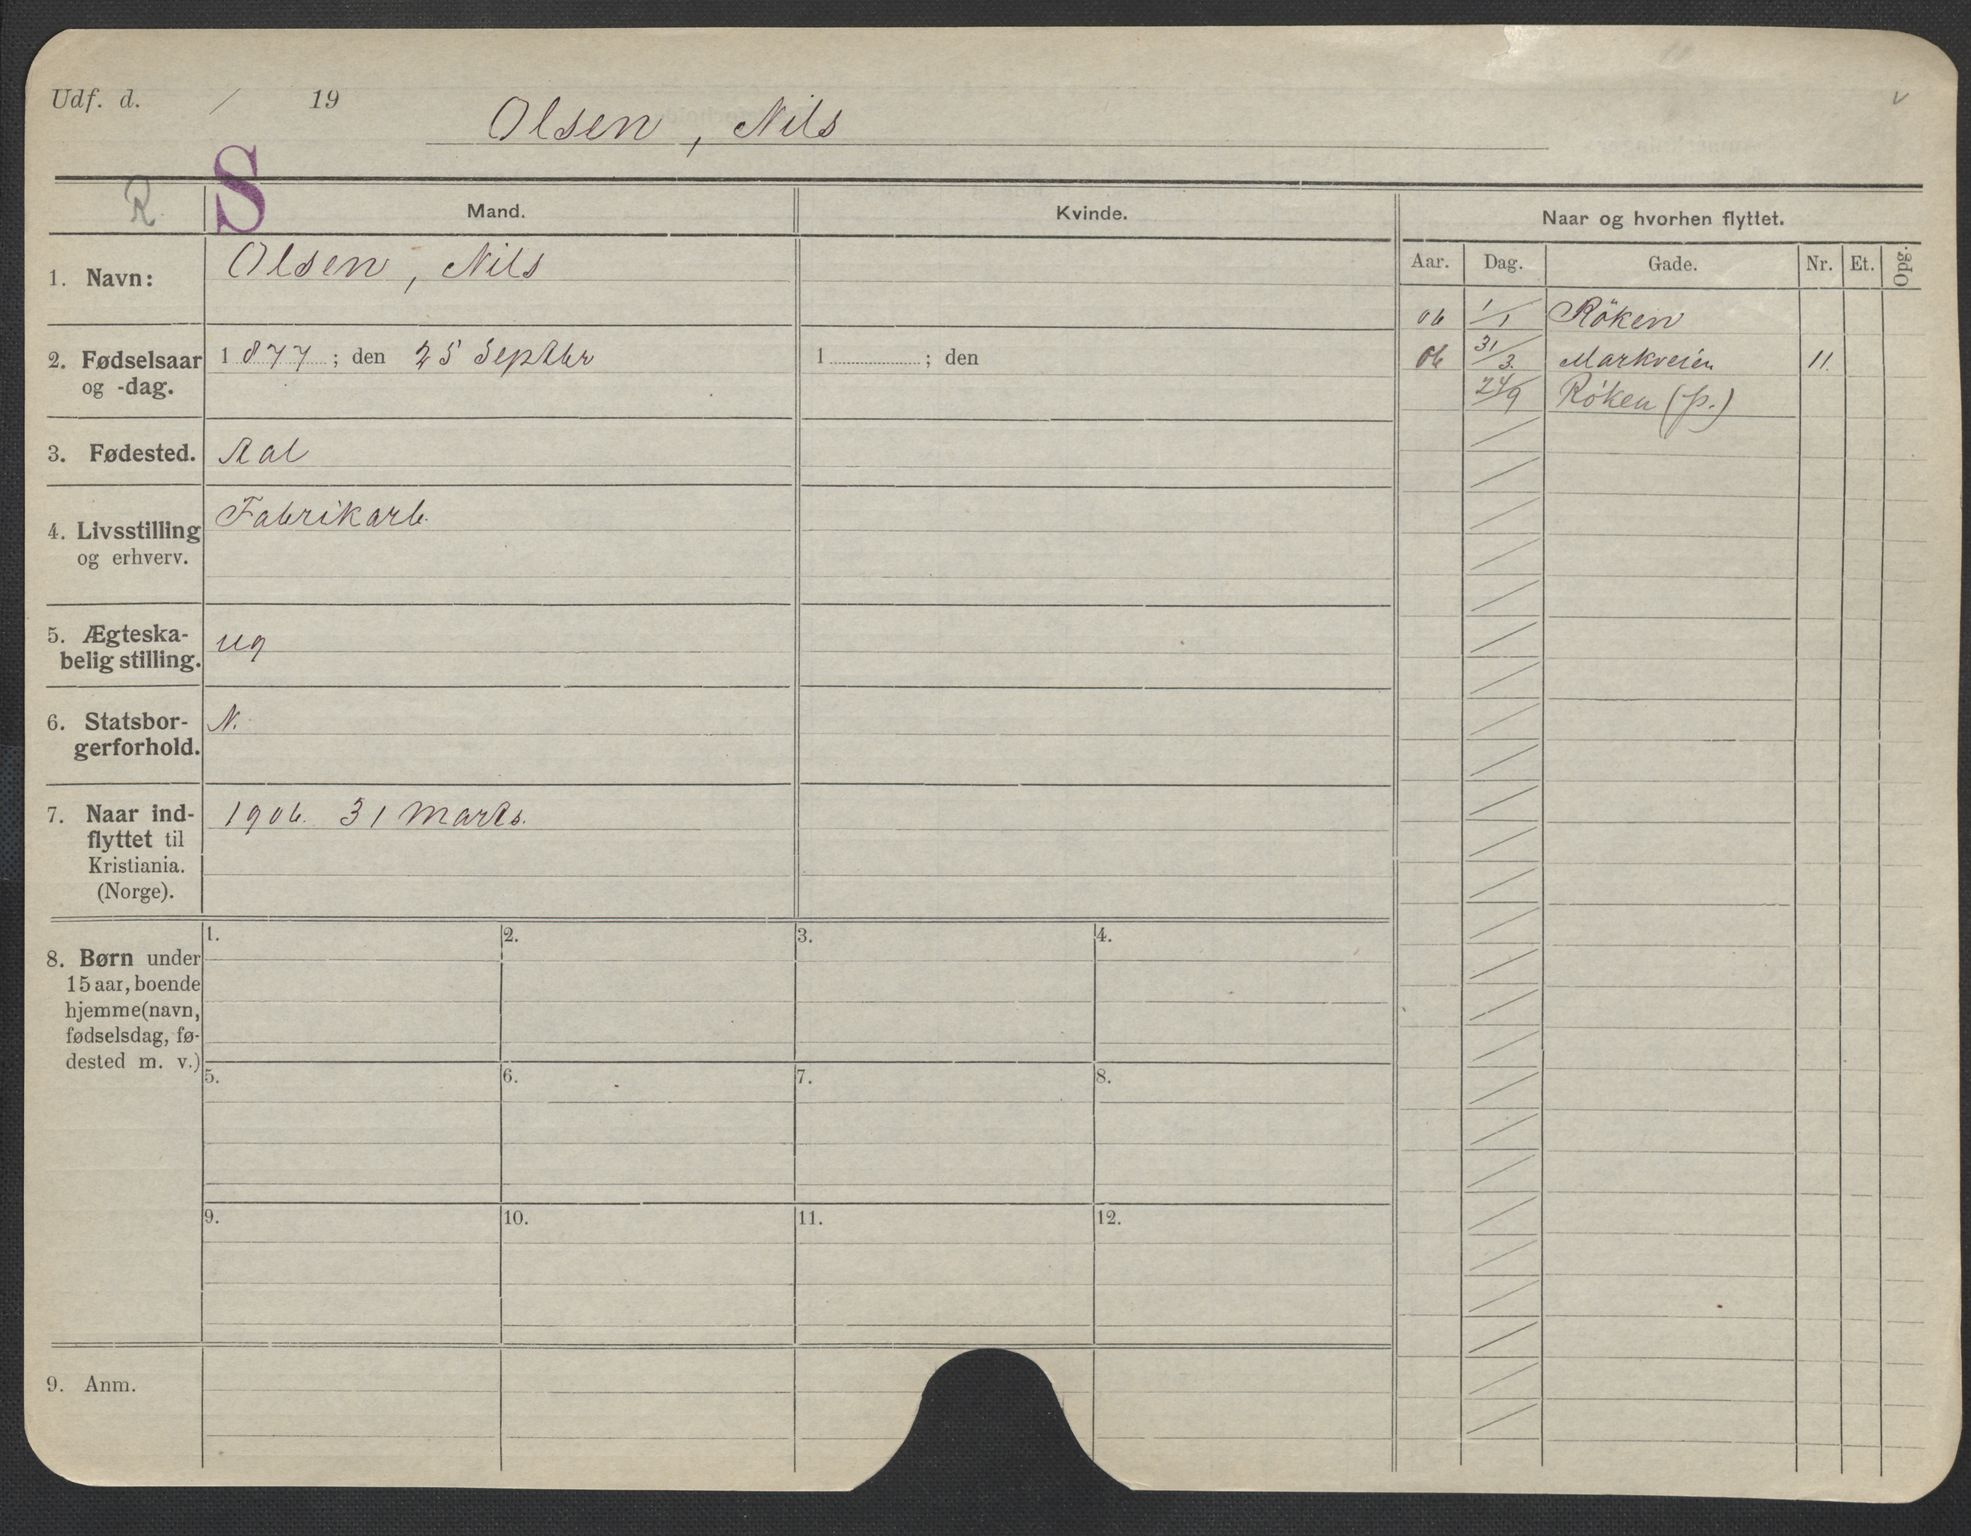 Udf. d. / 19
Olsen, Nils
v
R. S
Mand. Kvinde. Naar og hvorhen flyttet.
Aar. Dag. Gade. Nr. Et. Opg.
1. Navn: Olsen, Nils
06 1/1 Röken
2. Fødselsaar og -dag.
1877; den 25 Septbr
1 ; den
06 31/3. Markveien 11.
24/9 Röken (p.)
3. Fødested. Aal
4. Livsstilling
og erhverv.
Fabrikarb.
5. Ægteska-
belig stilling.
ug
6. Statsbor-
gerforhold.
N.
7. Naar ind-
flyttet til
Kristiania.
(Norge).
1906. 31 Marts.
8. Børn under
15 aar, boende
hjemme (navn,
fødselsdag, fø-
dested m. v.)
1. 2. 3. 4.
5. 6. 7. 8.
9. 10. 11. 12.
9. Anm.